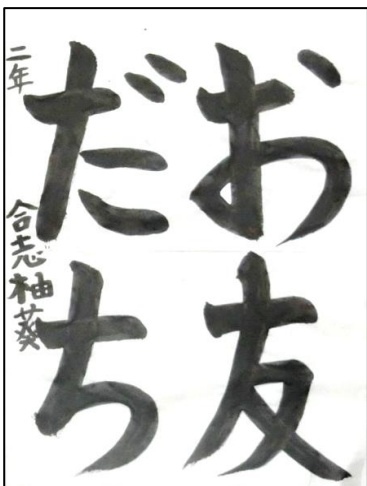 お友
だち
二年 合志柚葵